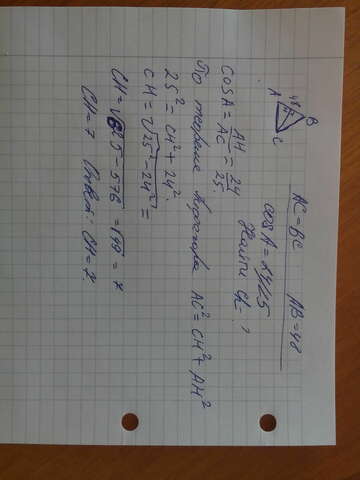 AC = BC AB = 48
cos A = 24/25
Найти CH - ?
A 48 B
H
C
COSA = AH/AC = 24/25.
По теореме Пифагора AC² = CH² + AH²
25² = CH² + 24².
CH = √25² - 24² =
CH = √625 - 576 = √49 = 7
CH = 7 Ответ: CH = 7.